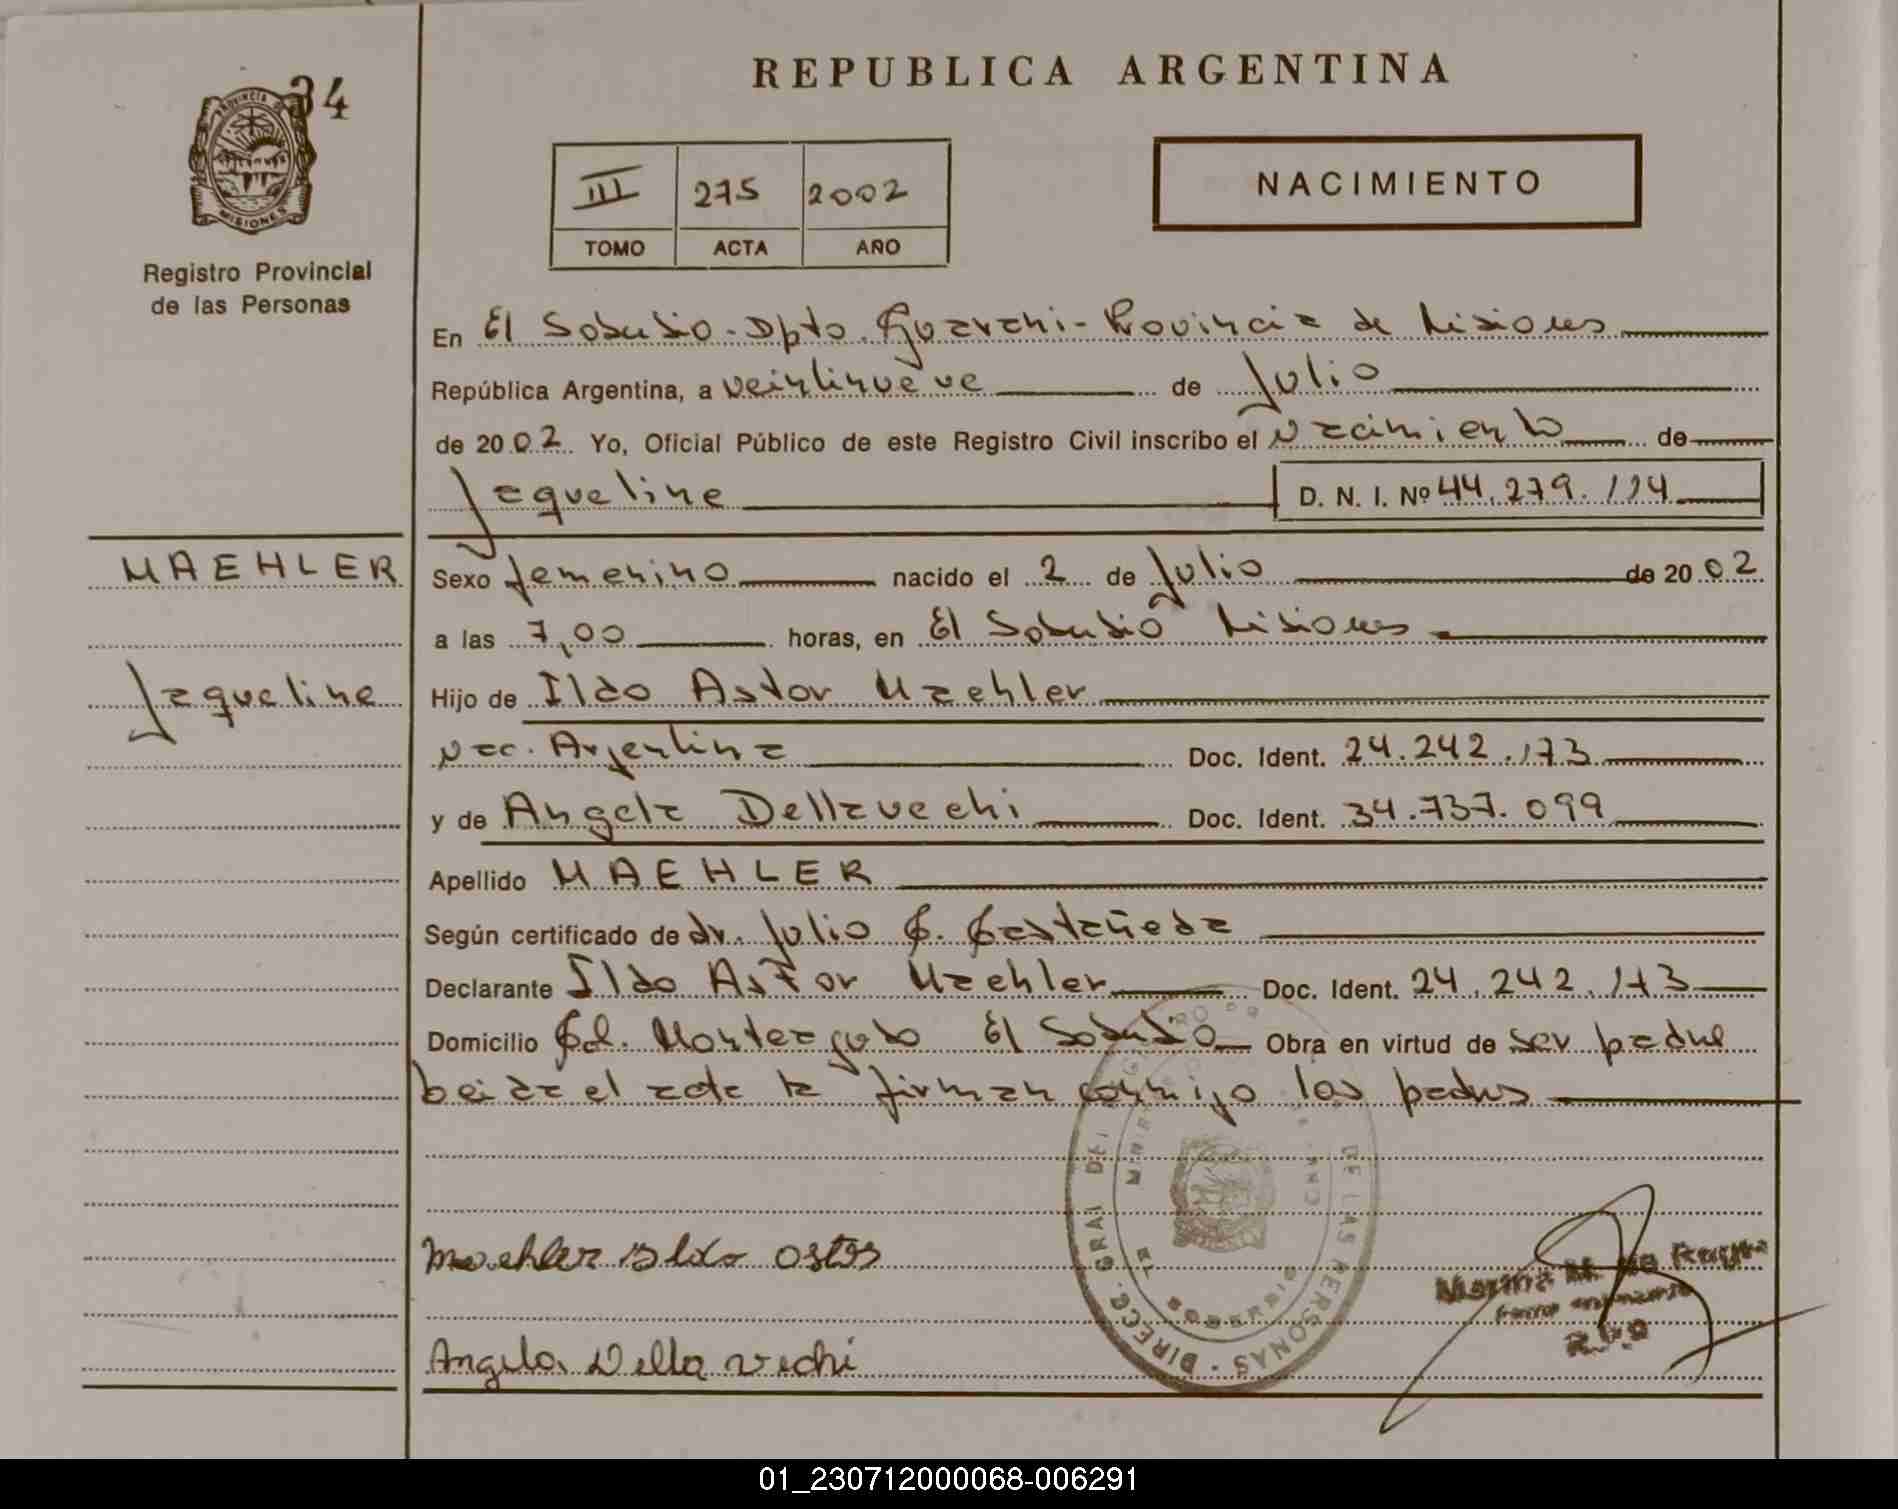 34
PROVINCIA DE
MISIONES
Registro Provincial
de las Personas
REPUBLICA ARGENTINA
III 275 2002
TOMO ACTA AÑO
NACIMIENTO
En El Soberbio - Dpto. Guarani - Provincia de Misiones
República Argentina, a veintinueve de Julio
de 2002 Yo, Oficial Público de este Registro Civil inscribo el Nacimiento de
Jaqueline D. N. I. Nº 44.279.114
MAEHLER
Jaqueline
Sexo femenino nacido el 2 de Julio de 2002
a las 7,00 horas, en El Soberbio Misiones
Hijo de Ildo Astor Maehler
Nac. Argentina Doc. Ident. 24.242.173
y de Angela Dellavechi Doc. Ident. 34.737.099
Apellido MAEHLER
Según certificado de dr. Julio C. Castañeda
Declarante Ildo Astor Maehler Doc. Ident. 24.242.173
Domicilio Col. Monteagudo El Soberbio Obra en virtud de ser padre
leida el acta la firman conmigo los padres
Maehler Ildo
Angela Della vechi
DIRECC. GRAL DEL DE LAS PERSONAS
GOBIERNO
01_230712000068-006291